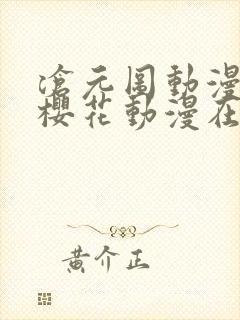 滄元圖動漫
櫻花動漫在
黃介正